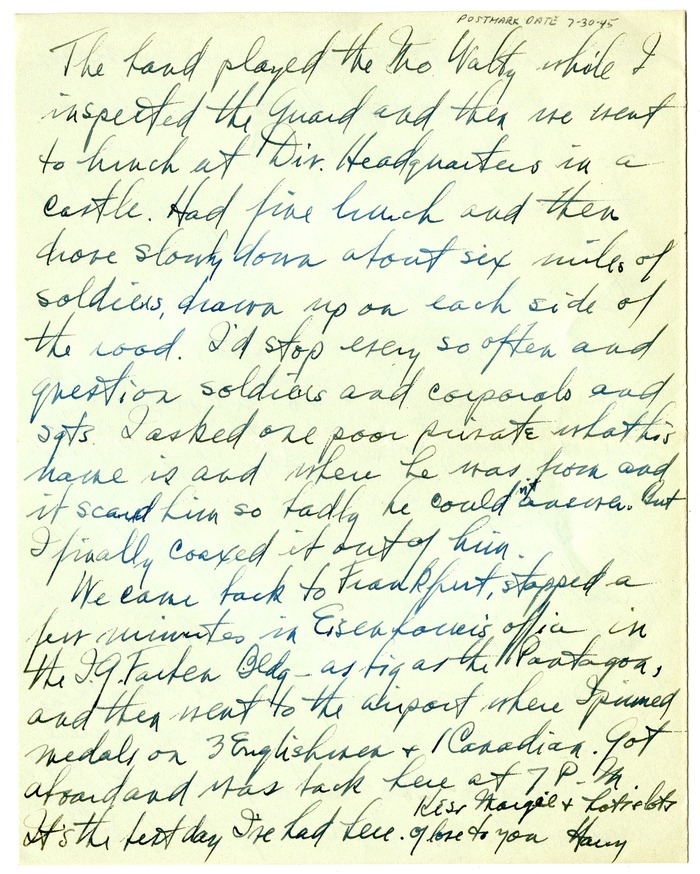 POSTMARK DATE 7-30-45
The band played the Mo. Waltz while I
inspected the Guard and then we went
to lunch at Div. Headquarters in a
castle. Had fine lunch and then
drove slowly down about six miles of
soldiers, drawn up on each side of
the road. I'd stop every so often and
question soldiers and corporals and
sgts. I asked one poor private what his
name is and where he was from and
it scared him so badly he couldn't answer. But
I finally coaxed it out of him.
We came back to Frankfurt, stopped a
few minutes in Eisenhowers office in
the I.G. Farben Bldg - as big as the Pentagon,
and then went to the airport where I pinned
medals on 3 Englishmen + 1 Canadian. Got
aboard and was back here at 7 P.M
It's the best day I've had here.
Kiss Margie + lots + lots
of love to you Harry